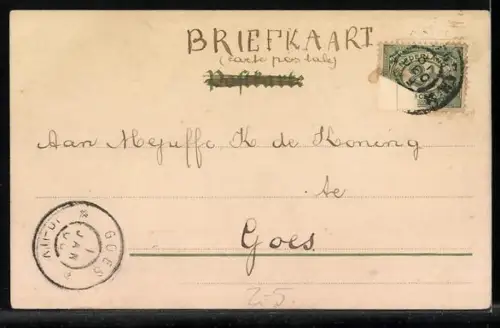 BRIEFKAART
(carte postale)
Postkarte
Aan Mejuffr. K de Koning
te
Goes
GOES
1 JAN
2-5